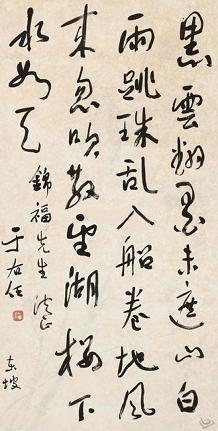 黑雲翻墨未遮山白
雨跳珠乱入船卷地風
来忽吹散望湖楼下
水如天
錦福先生法正
于右任
东坡